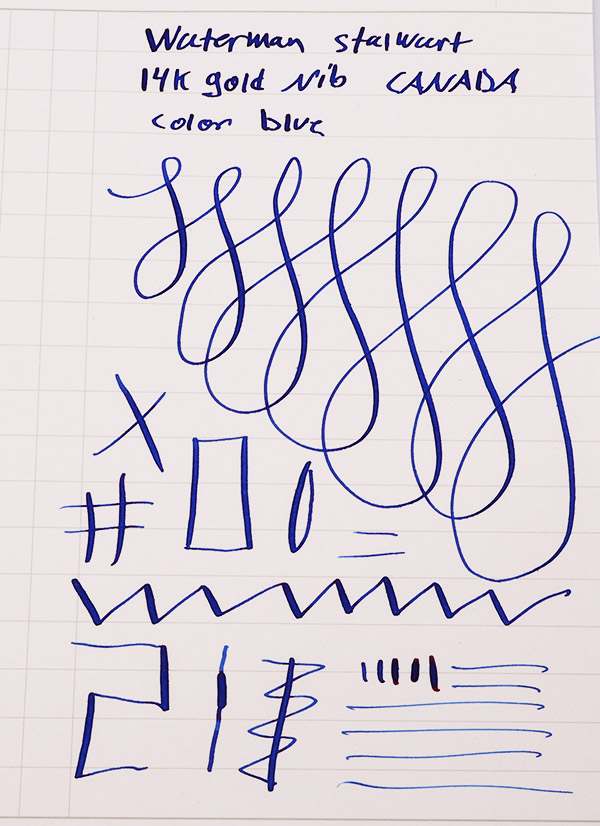 Waterman stalwart
14K gold Nib CANADA
color blue